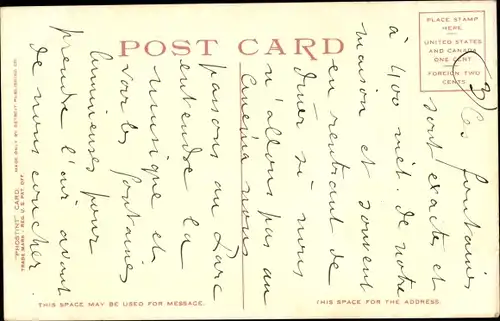 POST CARD
PLACE STAMP
HERE
UNITED STATES
AND CANADA
ONE CENT
FOREIGN TWO
CENTS
"PHOSTINT" CARD. MADE ONLY BY DETROIT PUBLISHING CO.
TRADE MARK · REG. U.S. PAT. OFF.
3/ Ces fontaines
sont exactes et
à 400 mèt. de notre
maison et souvent
en rentrant de
diner si nous
n'allons pas au
cinéma nous
passons au Parc
entendre la
musique et
voir les fontaines
lumineuses pour
prendre l'air avant
de nous coucher.
THIS SPACE MAY BE USED FOR MESSAGE.
THIS SPACE FOR THE ADDRESS.